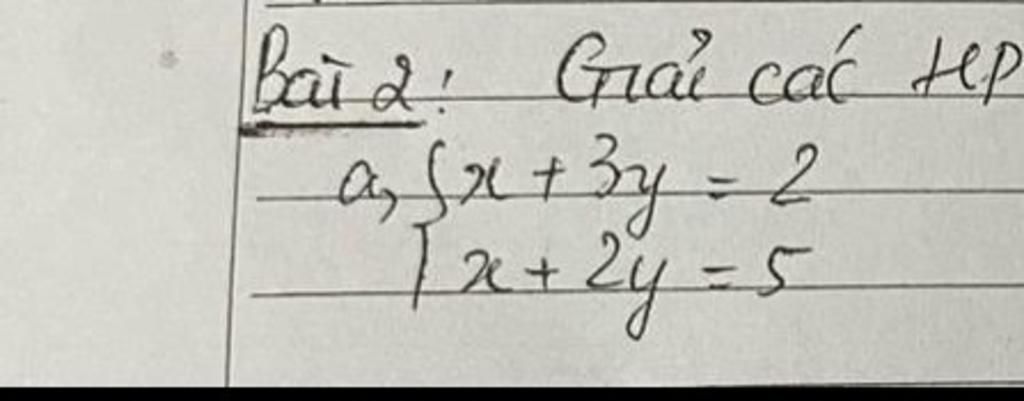 Bài 2: Giải các HP
a, { x + 3y = 2
x + 2y = 5